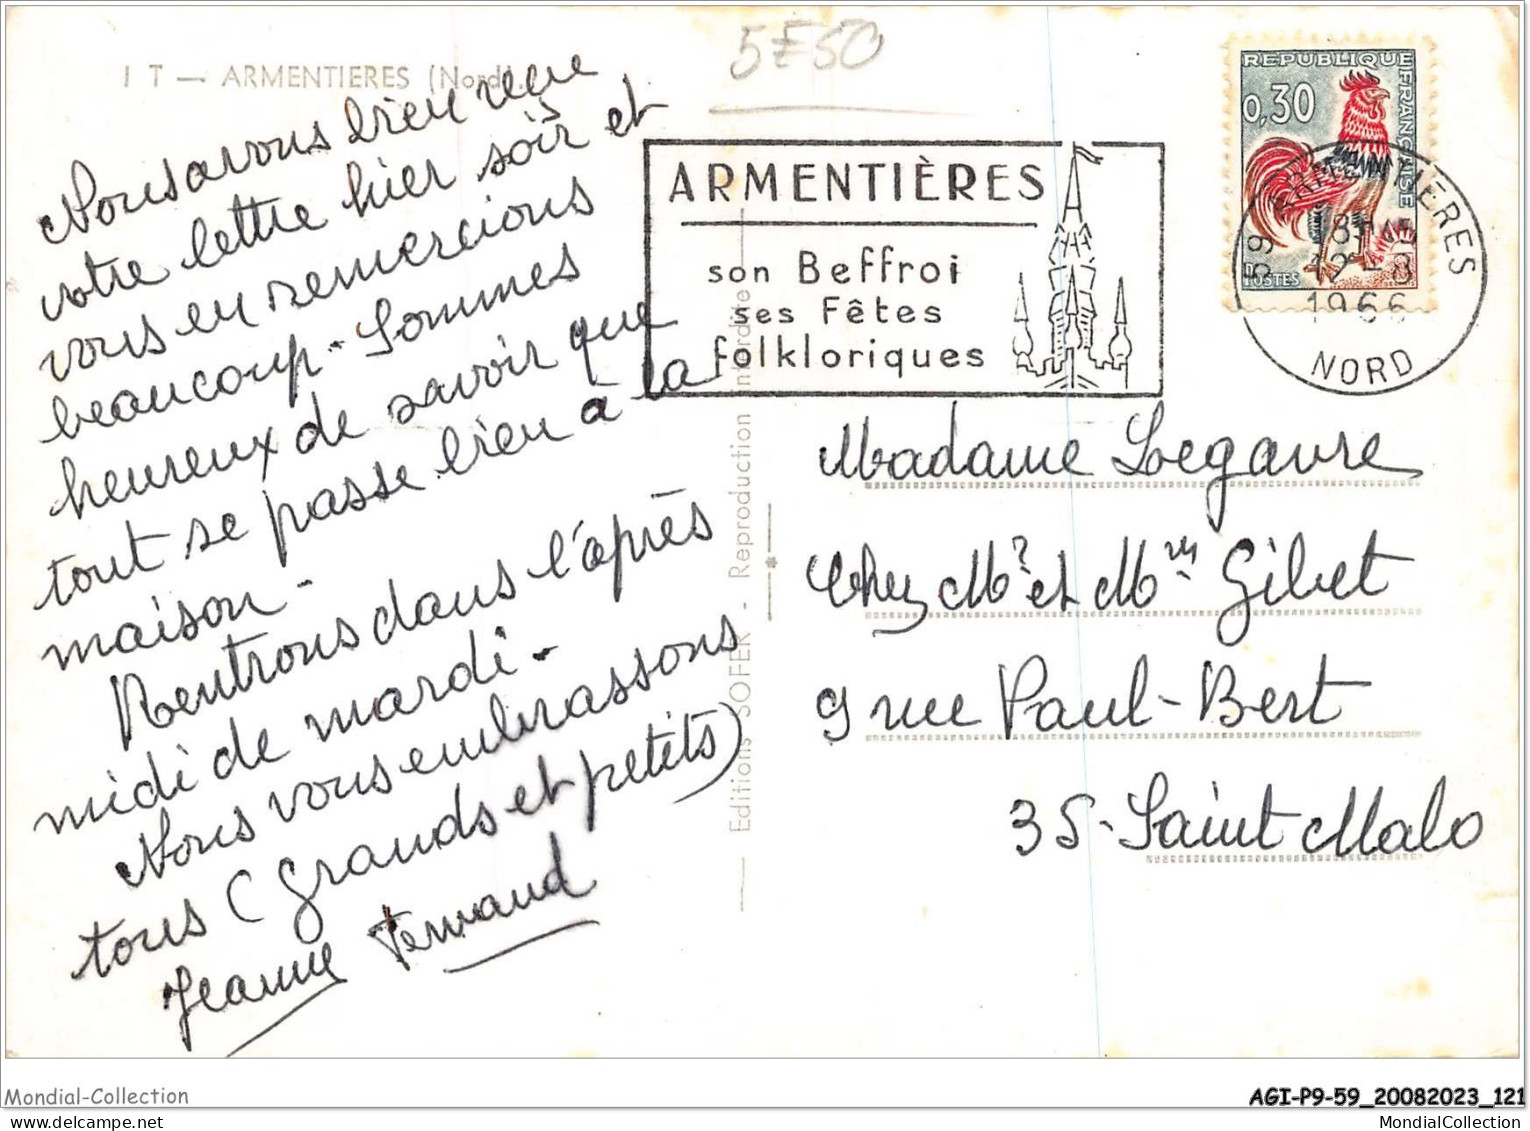 I T — ARMENTIERES (Nord)
5F50
Nous avons bien reçu
votre lettre hier soir et
vous en remercions
beaucoup - Sommes
heureux de savoir que
tout se passe bien à la
maison -
Rentrons dans l'après
midi de mardi -
Nous vous embrassons
tous (grands et petits)
Jeanne Fernand
Editions SOFER - Reproduction interdite
ARMENTIÈRES
son Beffroi
ses Fêtes
folkloriques
REPUBLIQUE FRANÇAISE
0,30
POSTES
59 ARMENTIERES
18H45
12-8
1966
NORD
Madame Legavre
Chez Mr et Mme Gilbet
9 rue Paul-Bert
35-Saint Malo
Mondial-Collection
AGI-P9-59_20082023_121
MondialCollection.com